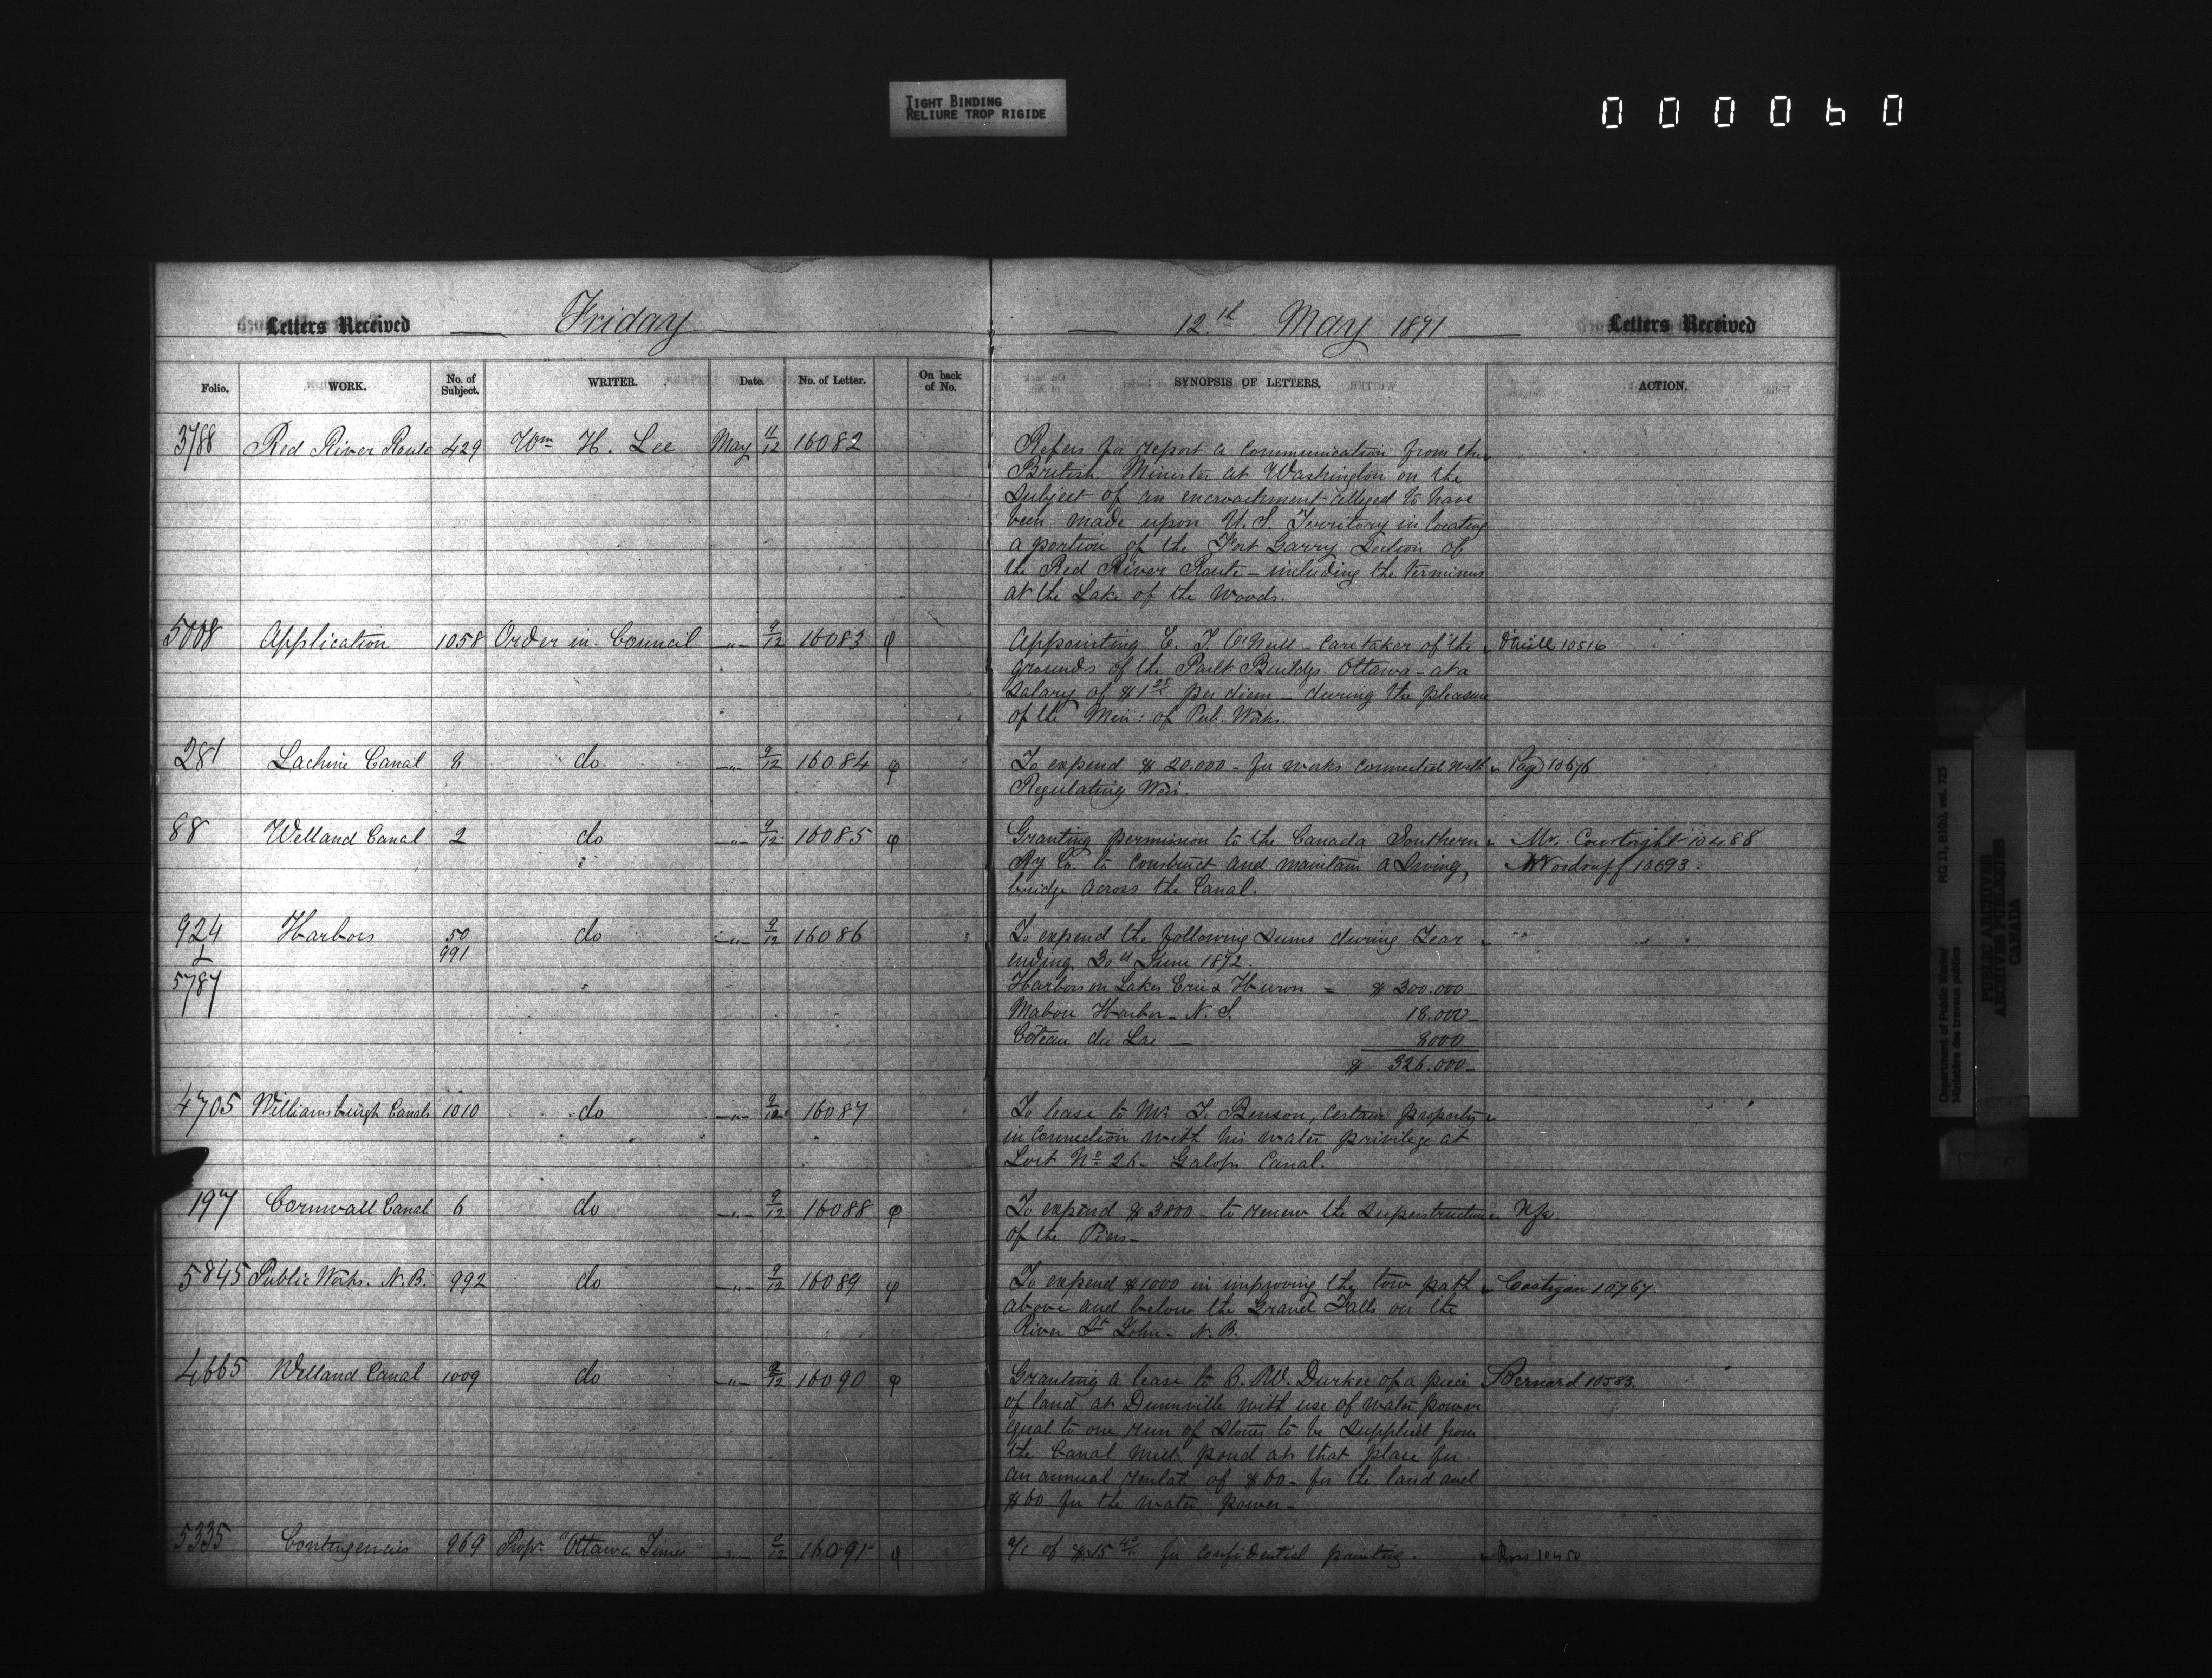 TIGHT BINDING
RELIURE TROP RIGIDE
000060
Letters Received Friday 12th May 1871 Letters Received
Folio. WORK. No. of Subject. WRITER. Date. No. of Letter. On back of No. SYNOPSIS OF LETTERS. ACTION.
3788 Red River Route 429 Wm H. Lee May 11/12 16082 Refers for report a communication from the
British Minister at Washington on the
subject of an encroachment alleged to have
been made upon U.S. Territory in locating
a portion of the Fort Garry Section of
the Red River Route - including the terminus
at the Lake of the Woods.
5008 Application 1058 Order in Council -"- 9/12 16083 φ Appointing E. T. O'Neill - Caretaker of the O'Neill 10516
grounds of the Parlt Buildgs Ottawa - at a
salary of $1 25 per diem - during the pleasure
of the Min: of Pub. Works.
281 Lachine Canal 8 do -"- 9/12 16084 φ To expend $20.000 - for works connected with Page 10676
Regulating Weir.
88 Welland Canal 2 do -"- 9/12 16085 φ Granting permission to the Canada Southern Mr. Courtright 10488
Ry Co. to construct and maintain a Swing Woodruff 10693.
bridge across the Canal.
924 Harbors 50 do -"- 9/12 16086 To expend the following sums during Year
& 991 ending 30th June 1872.
5787 Harbors on Lakes Erie & Huron = $300.000
Mabou Harbor - N.S. 18.000
Côteau du Lac - 8000
$ 326.000
4705 Williamsburgh Canals 1010 do -"- 9/12 16087 To lease to Mr. T. Benson, certain property
in connection with his water privilege at
Lock No 26 - Galops Canal.
197 Cornwall Canal 6 do -"- 9/12 16088 φ To expend $3800 - to renew the superstructure
of the Piers -
5845 Public Works. N.B. 992 do -"- 9/12 16089 φ To expend $1000 in improving the tow path Costigan 10767.
above and below the Grand Falls on the
River St John - N.B.
4665 Welland Canal 1009 do -"- 9/12 16090 φ Granting a lease to B. W. Durkee of a piece Bernard 10583.
of land at Dunnville with use of water power
equal to one run of stones to be supplied from
the Canal Mill pond at that place for
an annual rental of $60 - for the land and
$60 for the water power -
5335 Contingencies 969 Propr. "Ottawa Times 9/12 16091 φ a/c of $15 for confidential printing. 10450
RG 11, B1(b), vol. 725
Department of Public Works/
Ministère des travaux publics
PUBLIC ARCHIVES
ARCHIVES PUBLIQUES
CANADA